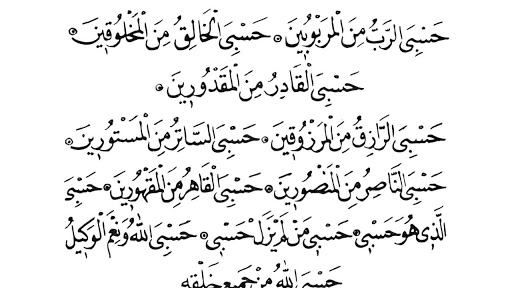 حَسْبِيَ الرَّبُّ مِنَ الْمَرْبُوبِينَ ۞ حَسْبِيَ الْخَالِقُ مِنَ الْمَخْلُوقِينَ ۞
حَسْبِيَ الْقَادِرُ مِنَ الْمَقْدُورِينَ ۞
حَسْبِيَ الرَّازِقُ مِنَ الْمَرْزُوقِينَ ۞ حَسْبِيَ السَّاتِرُ مِنَ الْمَسْتُورِينَ ۞
حَسْبِيَ النَّاصِرُ مِنَ الْمَنْصُورِينَ ۞ حَسْبِيَ الْقَاهِرُ مِنَ الْمَقْهُورِينَ ۞ حَسْبِيَ
الَّذِي هُوَ حَسْبِي ۞ حَسْبِي مَنْ لَمْ يَزَلْ حَسْبِي ۞ حَسْبِيَ اللّٰهُ وَنِعْمَ الْوَكِيلُ
حَسْبِيَ اللّٰهُ مِنْ جَمِيعِ خَلْقِهِ